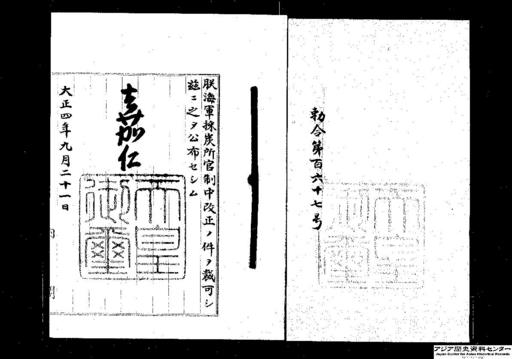 勅令第百六十七号
朕海軍採炭所官制中改正ノ件ヲ裁可シ
玆ニ之ヲ公布セシム
嘉仁
天皇
御璽
大正四年九月二十一日
アジア歴史資料センター
Japan Center for Asian Historical Records